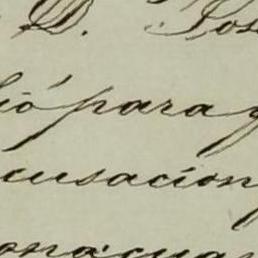 D. Jos
ió para q
cusacion